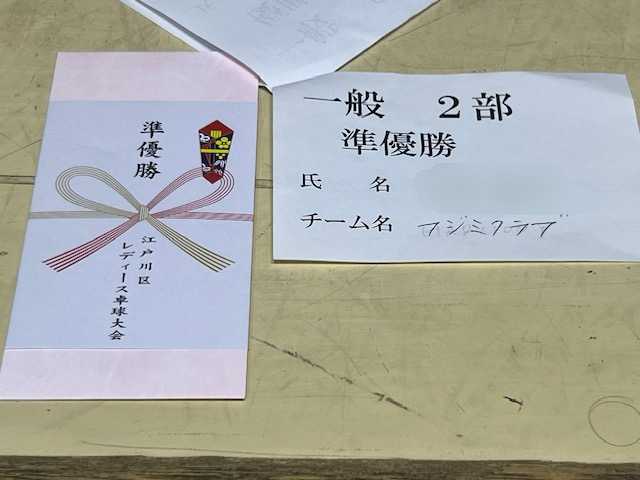 準優勝
江戸川区
レディース卓球大会
一般 2部
準優勝
氏 名
チーム名 フジミクラブ